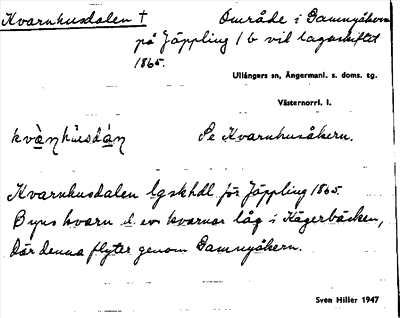 Kvarnhusdalen † Område i Damnyåkern
på Jäppling 1 b vid lagaskiftet
1865.
Ullångers sn, Ångermanl. s. doms. tg.
Västernorrl. l.
Se Kvarnhusåkern.
Kvarnhusdalen lgskhdl för Jäppling 1865
Byns kvarn el. ev kvarnar låg i Hägerbäcken,
där denna flyter genom Damnyåkern.
Sven Hiller 1947